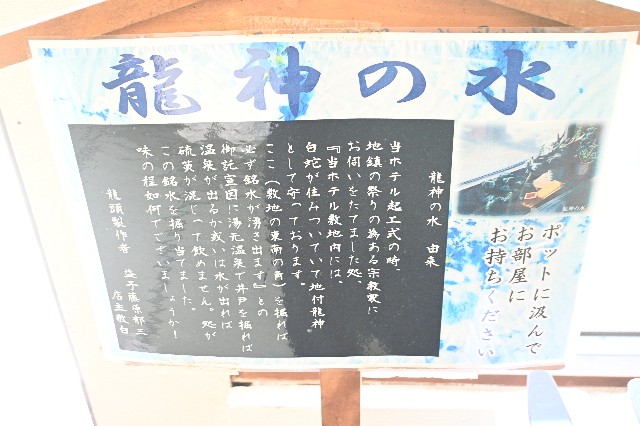 龍神の水
龍神の水　由来
当ホテル起工式の時、
地鎮の祭りの為ある宗教家に
お伺いをたてました処、
『当ホテル敷地内には、
白蛇が住みついていて地付龍神
として守っております。
ここ（敷地の東南の角）を掘れば
必ず銘水が湧き出ます』との
御託宣因に湯元温泉で井戸を掘れば
温泉が出るか或いは水が出れば
硫黄が混じって飲めません。処が
この銘水を掘り当てました。
味の程如何でございましょうか！
龍頭製作者　益子藤原郁三
店主敬白
龍神の水
ポットに汲んで
お部屋に
お持ちください